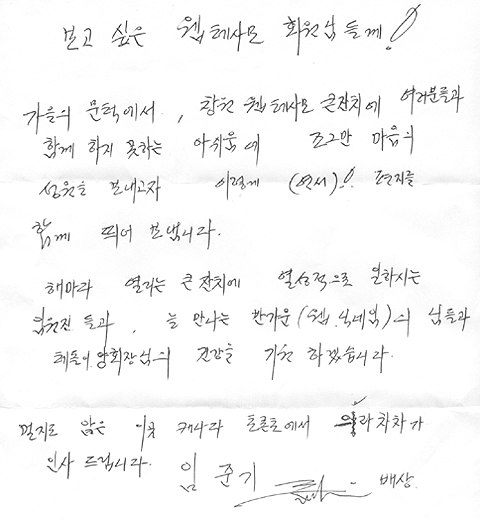 보고 싶은 웹테사모 회원님들께!
가을의 문턱에서, 창원 웹테사모 큰잔치에 여러분들과
함께 하지 못하는 아쉬움에 조그만 마음의
성원을 보내고자 이렇게 (엽서)! 편지를
함께 띄어 보냅니다.
해마다 열리는 큰 잔치에 열성적으로 일하시는
임원진 들과, 늘 만나는 반가운 (웹, 닉네임)의 님들과
테돌이 양회장님의 건강을 기원 하겠습니다.
멀지도 않은 이웃 캐나다 토론토에서 차차차가
인사 드립니다. 임 준 기 배상.